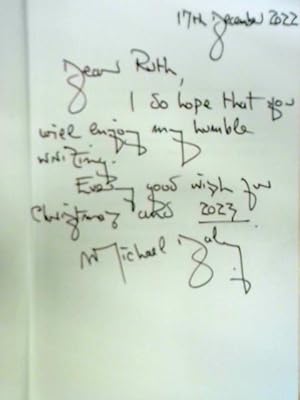 17th December 2022
Dear Ruth,
I do hope that you
will enjoy my humble
writing.
Every good wish for
Christmas and 2023.
Michael Daley